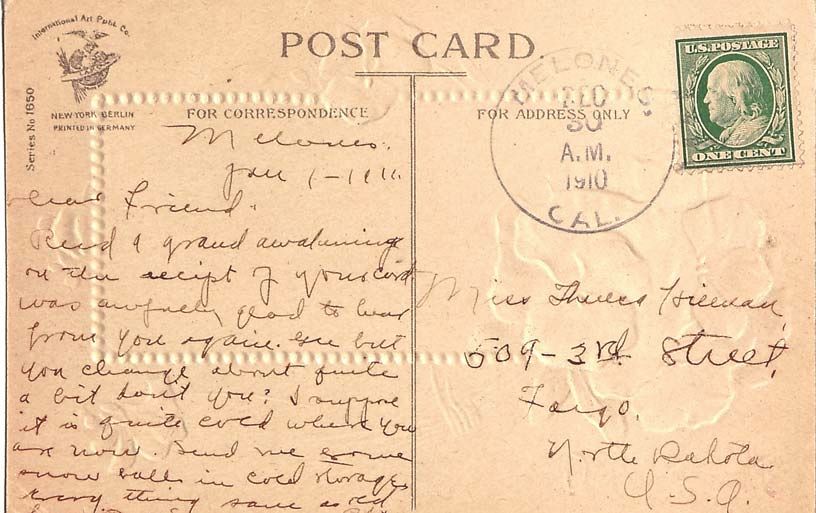 International Art Publ. Co.
Series No 1650
NEW YORK BERLIN
PRINTED IN GERMANY
POST CARD
FOR CORRESPONDENCE
FOR ADDRESS ONLY
MELONES,
DEC
30
A.M.
1910
CAL.
U.S. POSTAGE
ONE CENT
Melones.
Jan 1-1911.
Dear Friend.
a grand awakening
on the receipt of your card
was awfully glad to hear
from you again. Gee but
you change about quite
a bit don't you? I suppose
it is quite cold where you
are now. Send me some
snow balls in cold storage.
Every thing same as
Miss
509-3rd Street,
Fargo.
North Dakota
U.S.A.